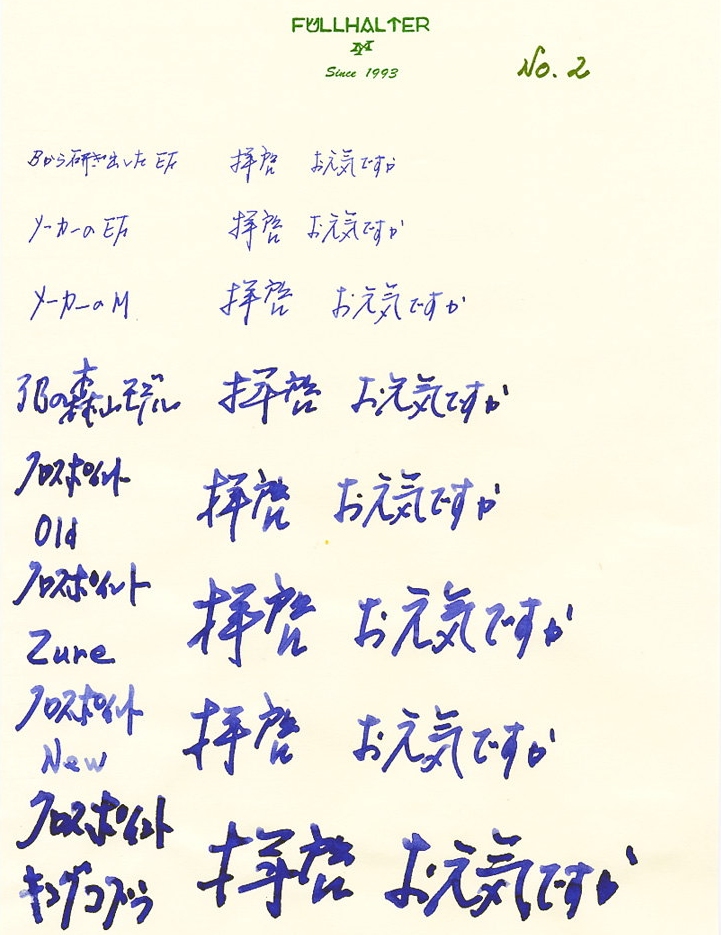 FULLHALTER
Since 1993
No. 2
Bから研ぎ出したEF 拝啓 お元気ですか
メーカーのEF 拝啓 お元気ですか
メーカーのM 拝啓 お元気ですか
3Bの森山モデル 拝啓 お元気ですか
クロスポイント 拝啓 お元気ですか
Old
クロスポイント 拝啓 お元気ですか
Zure
クロスポイント 拝啓 お元気ですか
New
クロスポイント 拝啓 お元気ですか
キングコブラ